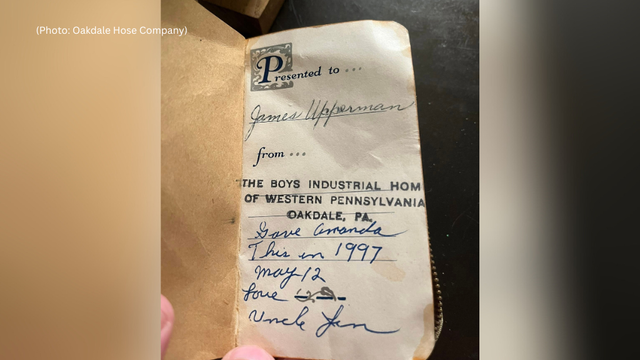 (Photo: Oakdale Hose Company)
Presented to ...
James Upperman
from ...
THE BOYS INDUSTRIAL HOM
OF WESTERN PENNSYLVANIA
OAKDALE, PA.
Gave Amanda
This in 1997
May 12
Love
Uncle